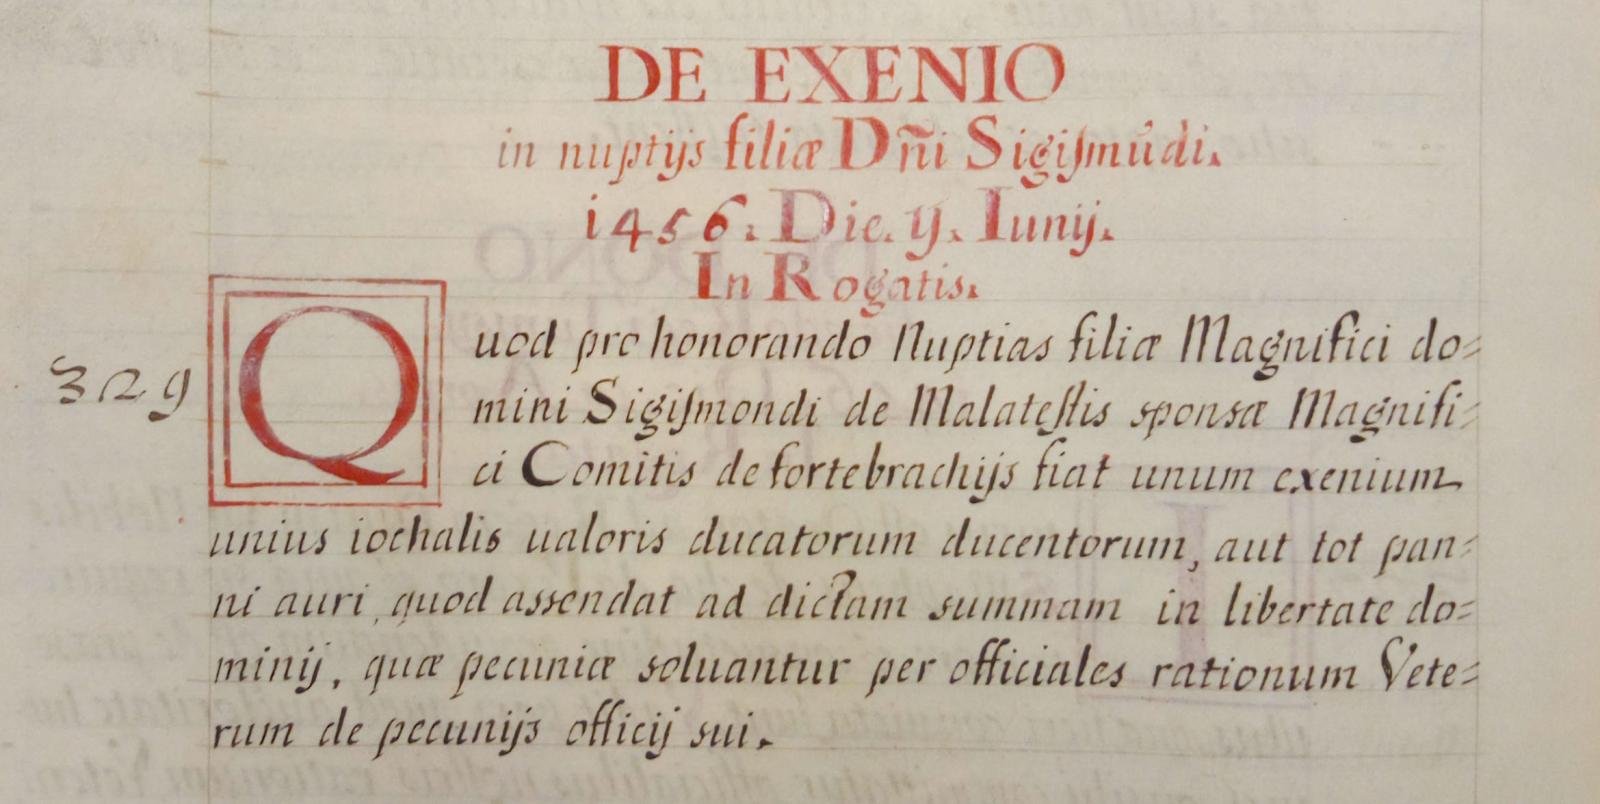 DE EXENIO
in nuptijs filiæ Dñi Sigiſmūdi.
1456. Die. ij. Iunij.
In Rogatis.
Quod pro honorando Nuptias filiæ Magnifici do=
329
mini Sigiſmondi de Malateſtis sponsæ Magnifi=
ci Comitis de fortebrachijs fiat unum exenium
unius iochalis ualoris ducatorum ducentorum, aut tot pan=
ni auri, quod assendat ad dictam summam in libertate do=
minij, quæ pecuniæ soluantur per officiales rationum Vete=
rum de pecunijs officij sui.